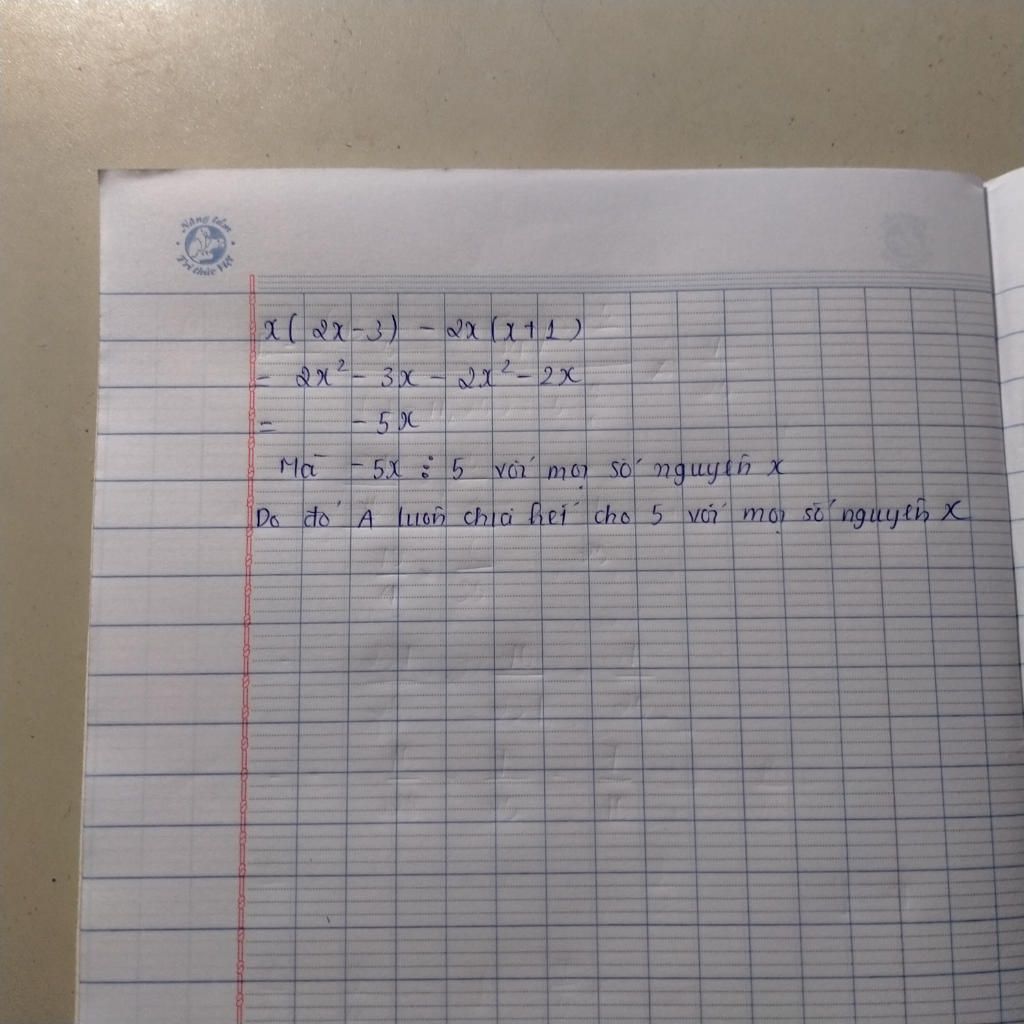 Nâng tầm
Trí thức Việt
x( 2x-3) - 2x(x+1)
= 2x² - 3x - 2x² - 2x
= - 5x
Mà -5x ⋮ 5 với mọi số nguyên x
Do đó A luôn chia hết cho 5 với mọi số nguyên x